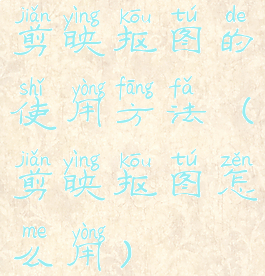 jiǎn yìng kōu tú de
剪映抠图的
shǐ yòng fāng fǎ
使用方法（
jiǎn yìng kōu tú zěn
剪映抠图怎
me yòng
么用）